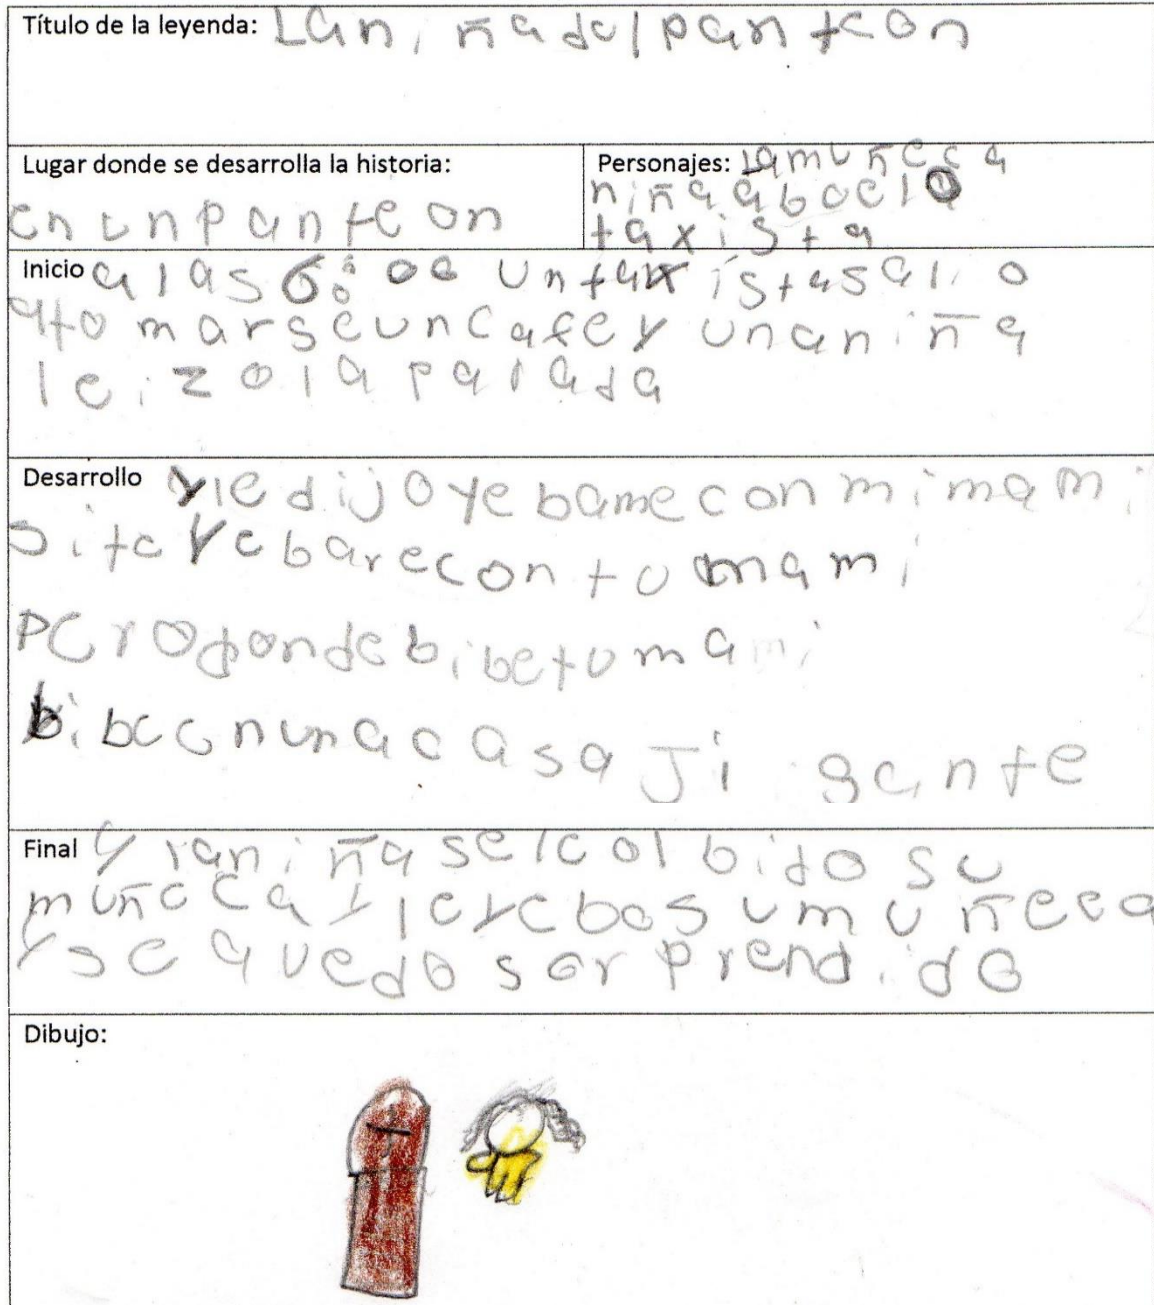 Título de la leyenda: Lan iñadelpanteon
Lugar donde se desarrolla la historia:
enunpanteon
Personajes: Lamuñeca
niñaaboelo
taxista
Inicio alas 6:00 untaxistasalio
atomarseuncafey unaniña
leizolaparada
Desarrollo yledijoyebameconmimami
siteyebarecontumami
perodondebibetumami
bibeenunacasa Ji gante
Final y laniñaseleolbido su
muñeca yleyebosumuñeca
ysequedosorprendido
Dibujo: